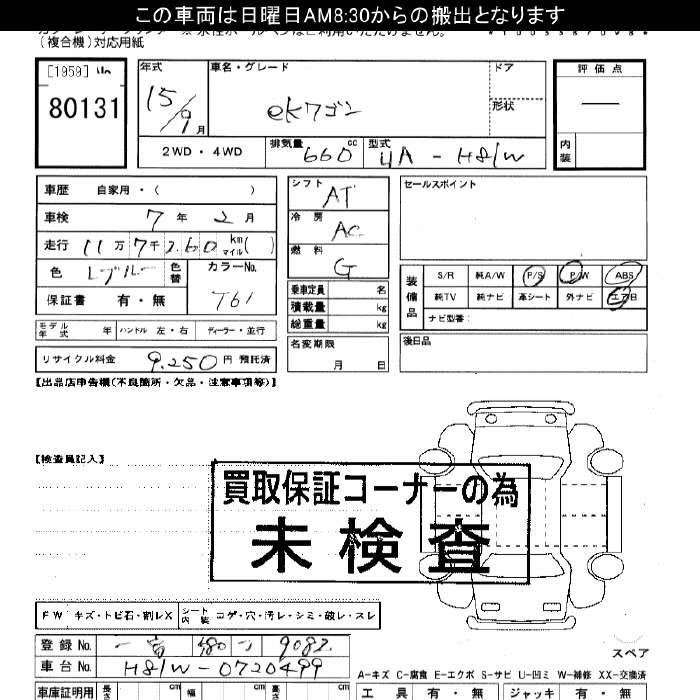 この車両は日曜日AM8:30からの搬出となります
(複合機)対応用紙
[1959]
80131
年式
15/9月
車名・グレード
ekワゴン
ドア
形状
評価点
—
内装
2WD・4WD
排気量
660cc
型式
UA-H81W
車歴 自家用・( )
車検 7年2月
走行 11万7千 km マイル( )
色
色替
カラーNo.
T61
保証書 有・無
シフト
AT
冷房
AC
燃料
G
乗車定員 名
積載量 kg
総重量 kg
セールスポイント
装備品
S/R 純A/W P/S P/W ABS
純TV 純ナビ 革シート 外ナビ エアB
ナビ型番:
モデル年式 年 ハンドル 左・右 ディーラー・並行
リサイクル料金 9,250円 預託済
名変期限
月 日
後日品
【出品店申告欄(不良箇所・欠品・注意事項等)】
【検査員記入】
買取保証コーナーの為
未検査
FW キズ・トビ石・割レX
シート内装 コゲ・穴・汚レ・シミ・破レ・スレ
登録No. 480 908
車台No. H81W-0720499
スペア
A-キズ C-腐食 E-エクボ S-サビ U-凹ミ W-補修 XX-交換済
車庫証明用 長さ cm 幅 cm 高さ cm
工具 有・無 ジャッキ 有・無